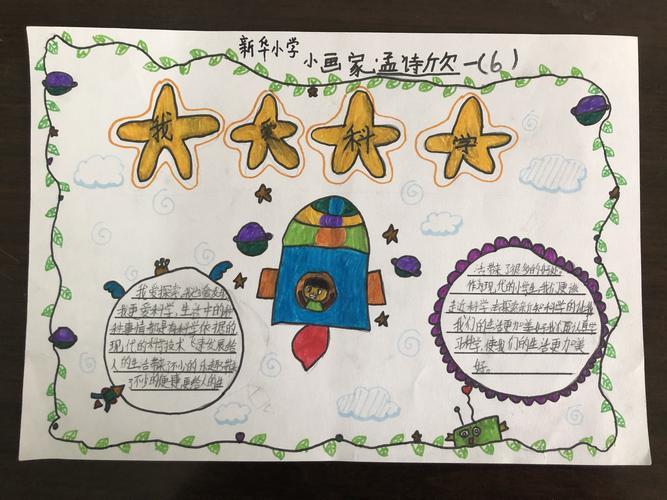 新华小学
小画家:孟诗欣 一(6)
我爱科学
我爱探索,我也会发明
我更爱科学,生活中的种
种事情都是有科学依据的
现代的科学技术飞速发展给
人的生活带来不小的乐趣带来
了不小的便捷,更给人的生
活带来了很多的好处。
作为现代的小学生我们更该
走近科学去探索
科学的
我们的生活更加美好我们要认真学
习科学,使我们的生活更加美
好。